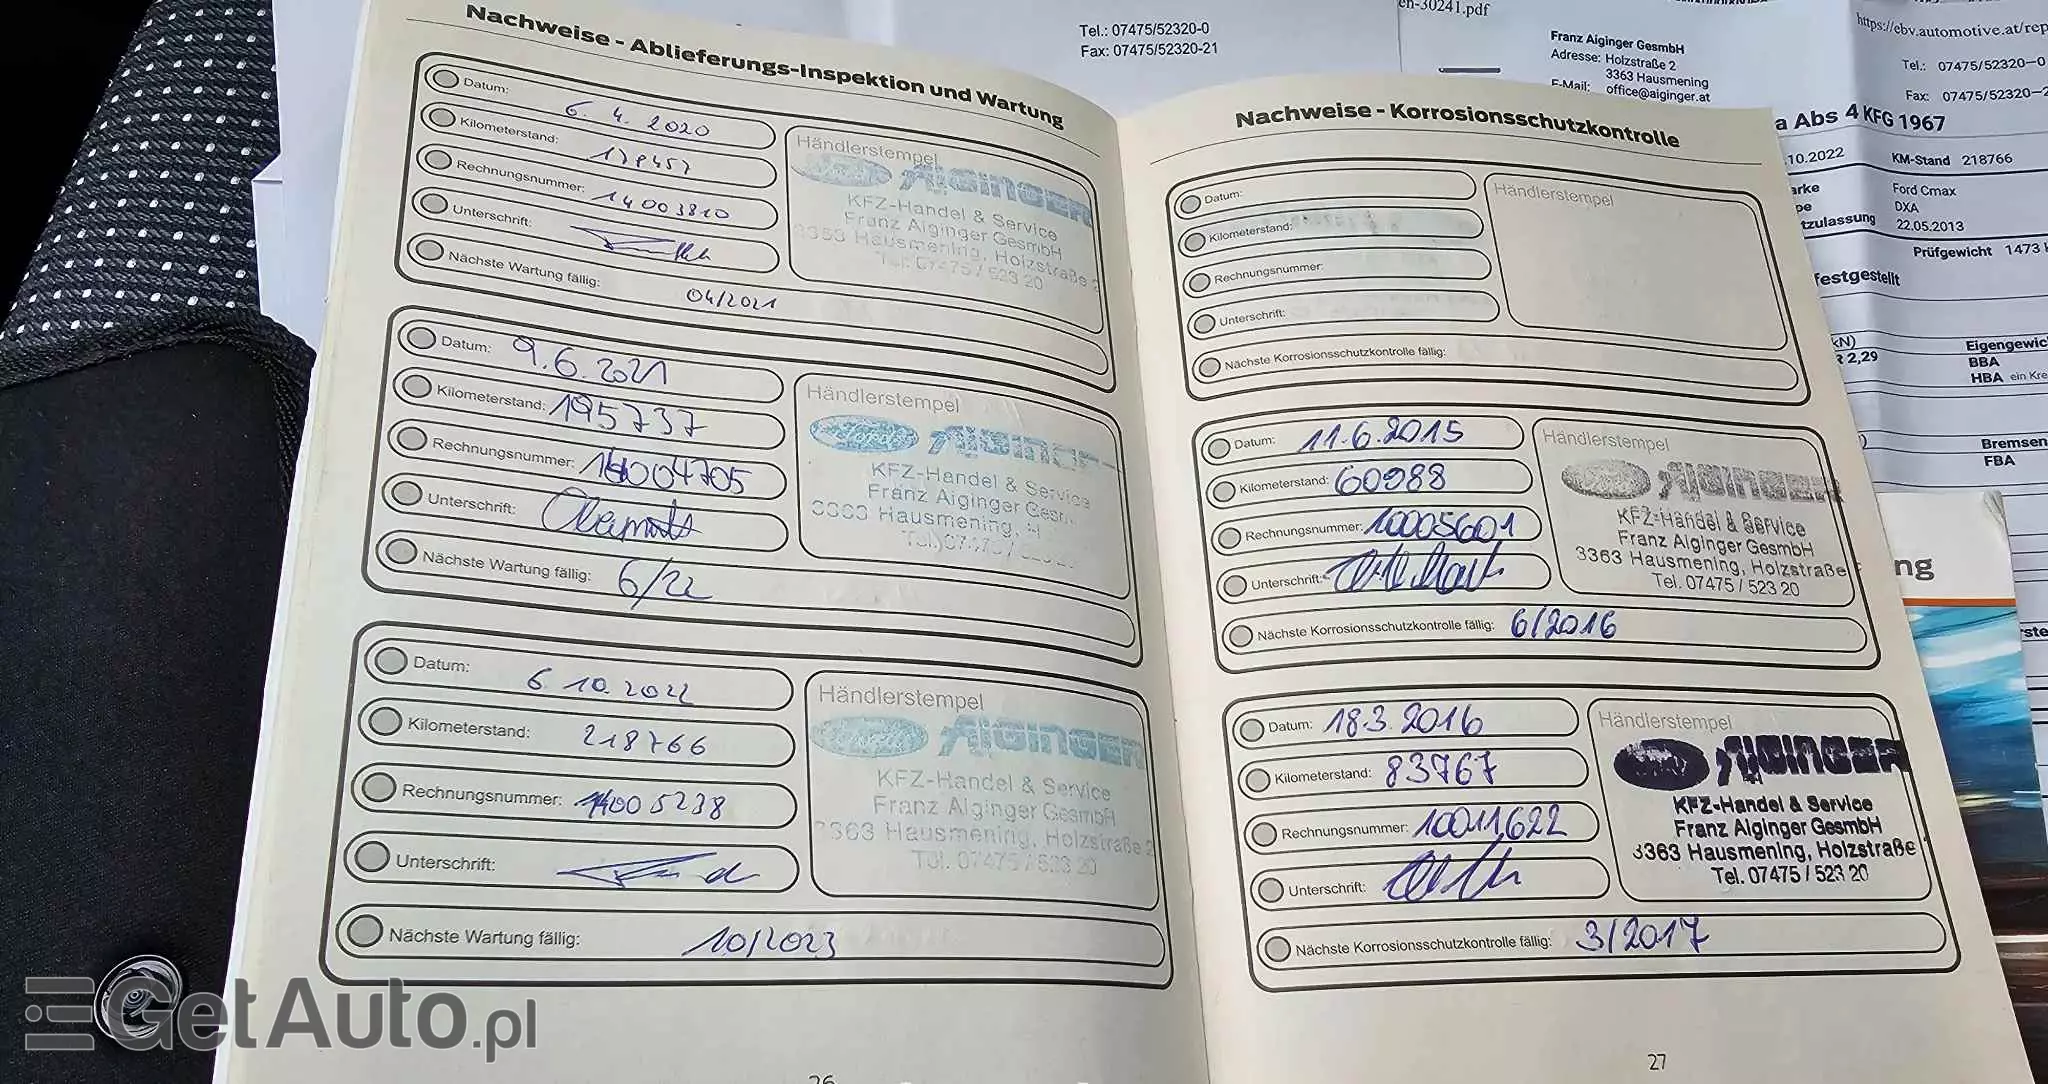 Nachweise - Ablieferungs-Inspektion und Wartung
Datum: 6. 4. 2020
Kilometerstand: 178457
Rechnungsnummer: 14003810
Unterschrift:
Nächste Wartung fällig: 04/2021
Händlerstempel
Ford AIGINGER
KFZ-Handel & Service
Franz Aiginger GesmbH
3363 Hausmening, Holzstraße 2
Tel. 07475 / 523 20
Datum: 9.6.2021
Kilometerstand: 195737
Rechnungsnummer: 14004705
Unterschrift:
Nächste Wartung fällig: 6/22
Händlerstempel
Ford AIGINGER
KFZ-Handel & Service
Franz Aiginger Gesm
3363 Hausmening, H
Tel. 07475 /
Datum: 6 10. 2022
Kilometerstand: 218766
Rechnungsnummer: 14005238
Unterschrift:
Nächste Wartung fällig: 10/2023
Händlerstempel
AIGINGER
KFZ-Handel & Service
Franz Aiginger GesmbH
3363 Hausmening, Holzstraße 2
Tel. 07475 / 523 20
26
Nachweise - Korrosionsschutzkontrolle
Datum:
Kilometerstand:
Rechnungsnummer:
Unterschrift:
Nächste Korrosionsschutzkontrolle fällig:
Händlerstempel
Datum: 11.6.2015
Kilometerstand: 60988
Rechnungsnummer: 10005601
Unterschrift:
Nächste Korrosionsschutzkontrolle fällig: 6/2016
Händlerstempel
AIGINGER
KFZ-Handel & Service
Franz Aiginger GesmbH
3363 Hausmening, Holzstraße
Tel. 07475 / 523 20
Datum: 18.3.2016
Kilometerstand: 83767
Rechnungsnummer: 10011622
Unterschrift:
Nächste Korrosionsschutzkontrolle fällig: 3/2017
Händlerstempel
AIGINGER
KFZ-Handel & Service
Franz Aiginger GesmbH
3363 Hausmening, Holzstraße
Tel. 07475 / 523 20
27
Tel.: 07475/52320-0
Fax: 07475/52320-21
en-30241.pdf
Franz Aiginger GesmbH
Adresse: Holzstraße 2
3363 Hausmening
E-Mail: office@aiginger.at
https://ebv.automotive.at/rep
Tel.: 07475/52320-0
Fax: 07475/52320-2
a Abs 4 KFG 1967
.10.2022 KM-Stand 218766
arke Ford Cmax
pe DXA
tzulassung 22.05.2013
Prüfgewicht 1473
festgestellt
kN) Eigengewic
2,29 BBA
HBA ein Kre
Bremsen
FBA
ng
rste
GetAuto.pl